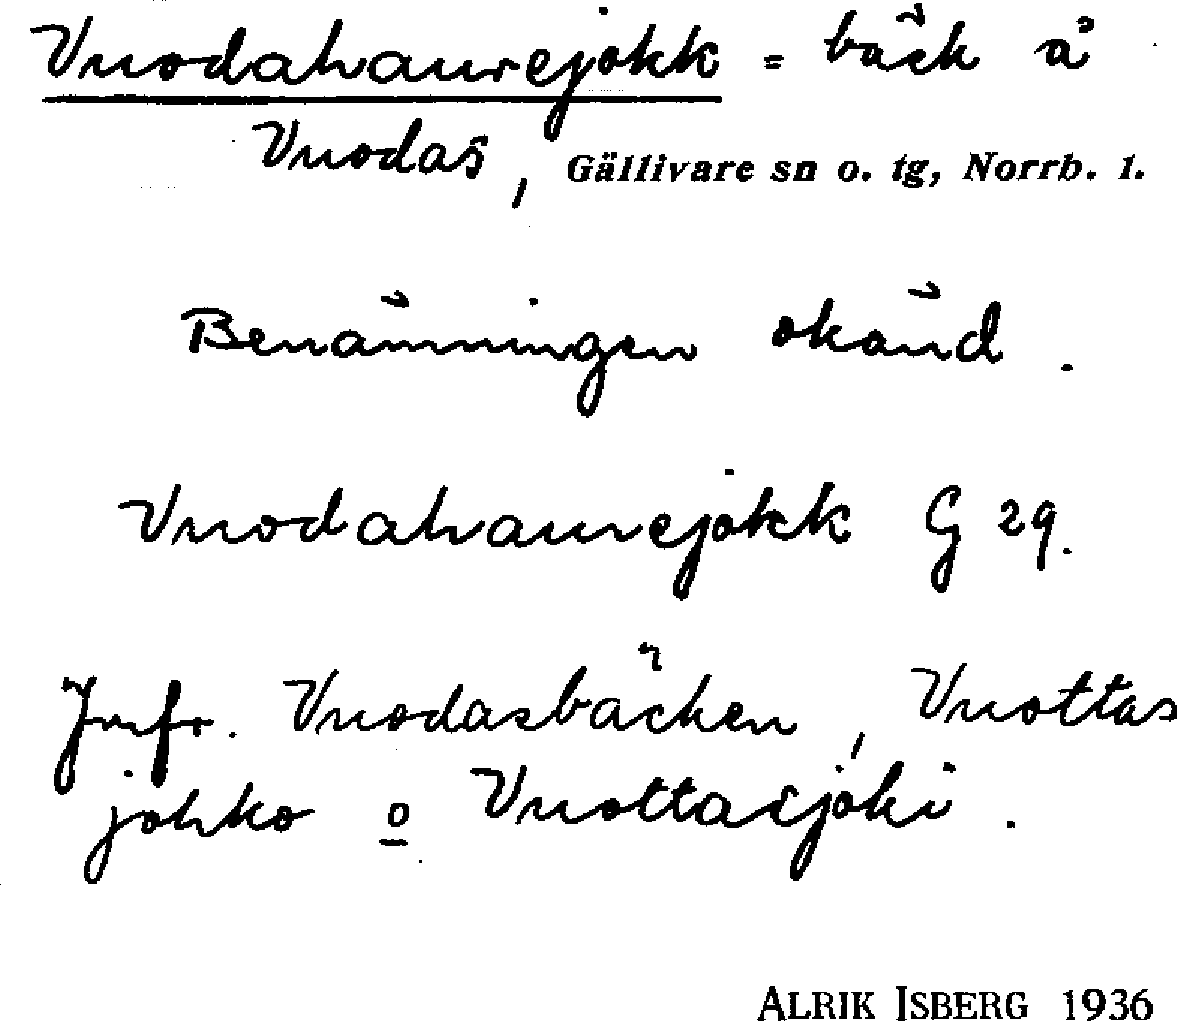 Vuodahaurejokk = bäck å
Vuodas, Gällivare sn o. tg, Norrb. l.
Benämningen okänd.
Vuodahaurejokk G 29.
Jmfr. Vuodasbäcken, Vuottas
johko o Vuottasjoki.
ALRIK ISBERG 1936